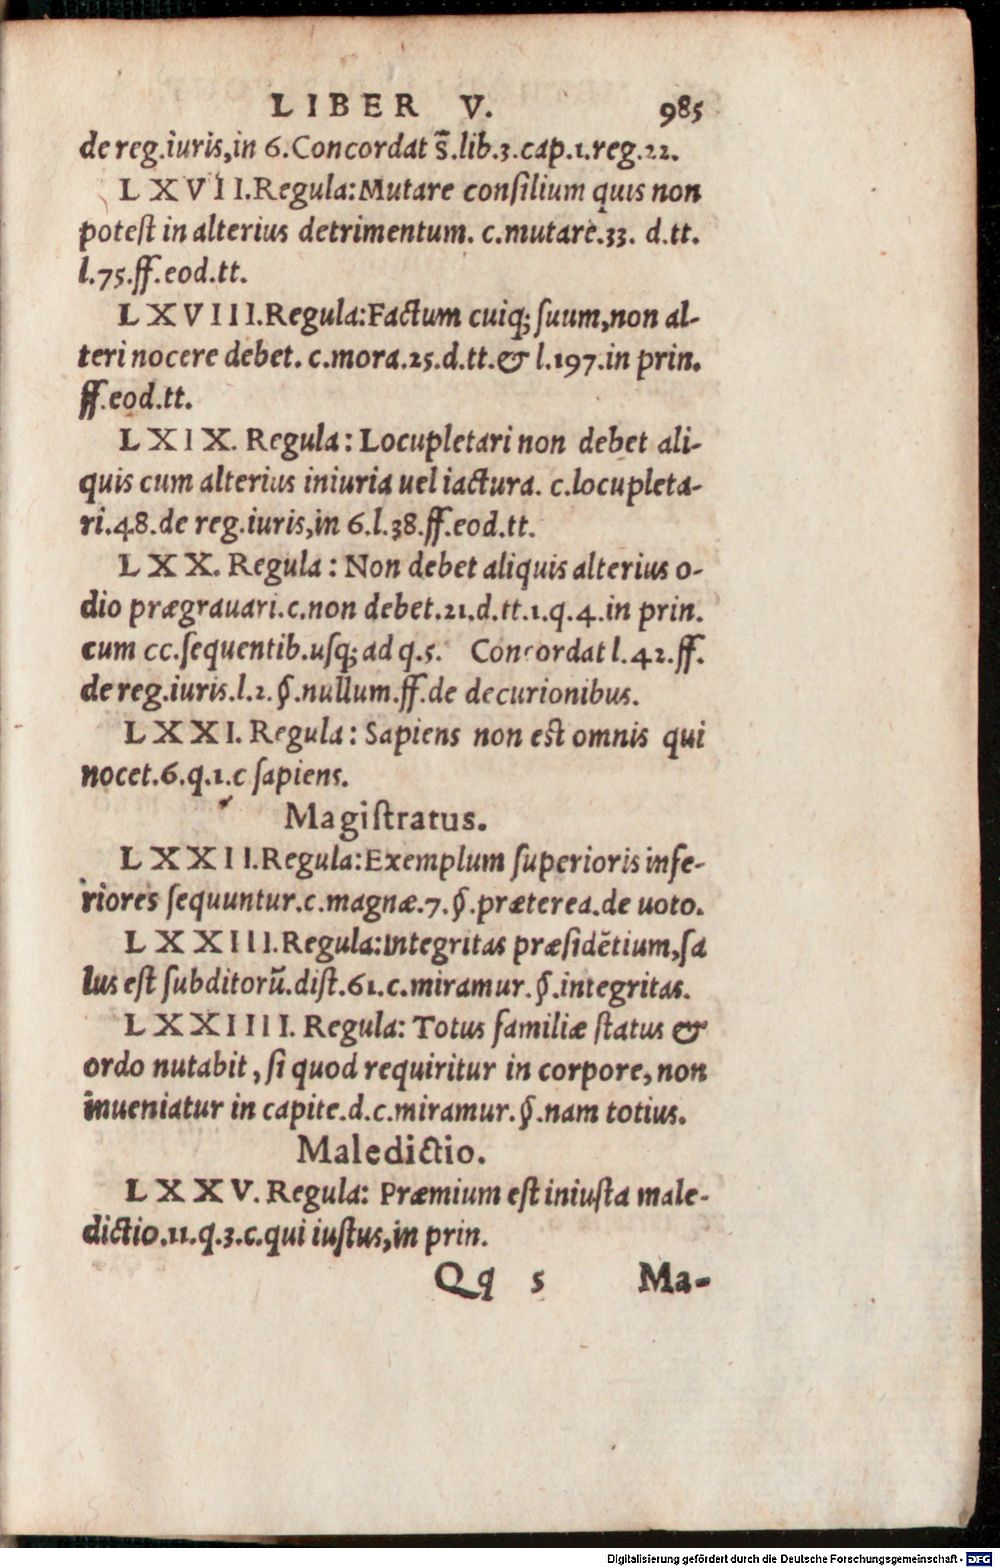 LIBER V. 985
de reg.iuris,in 6.Concordat s̄.lib.3.cap.1.reg.22.
LXVII.Regula:Mutare consilium quis non
potest in alterius detrimentum. c.mutare.33. d.tt.
l.75.ff.eod.tt.
LXVIII.Regula:Factum cuiq; suum,non al-
teri nocere debet. c.mora.25.d.tt.& l.197.in prin.
ff.eod.tt.
LXIX. Regula: Locupletari non debet ali-
quis cum alterius iniuria uel iactura. c.locupleta-
ri.48.de reg.iuris,in 6.l.38.ff.eod.tt.
LXX. Regula: Non debet aliquis alterius o-
dio prægrauari.c.non debet.21.d.tt.1.q.4.in prin.
cum cc.sequentib.usq; ad q.5. Concordat l.42.ff.
de reg.iuris.l.2.§.nullum.ff.de decurionibus.
LXXI. Regula: Sapiens non est omnis qui
nocet.6.q.1.c sapiens.
Magistratus.
LXXII.Regula:Exemplum superioris infe-
riores sequuntur.c.magnæ.7.§.præterea.de uoto.
LXXIII.Regula:Integritas præsidētium,sa
lus est subditorū.dist.61.c.miramur.§.integritas.
LXXIIII. Regula: Totus familiæ status &
ordo nutabit, si quod requiritur in corpore, non
inueniatur in capite.d.c.miramur.§.nam totius.
Maledictio.
LXXV. Regula: Præmium est iniusta male-
dictio.11.q.3.c.qui iustus,in prin.
Qq 5 Ma-
Digitalisierung gefördert durch die Deutsche Forschungsgemeinschaft - DFG